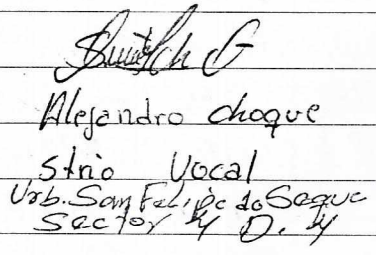 Alejandro choque
strio Vocal
Urb. San Felipe de Seque
Sector 4 D. 4